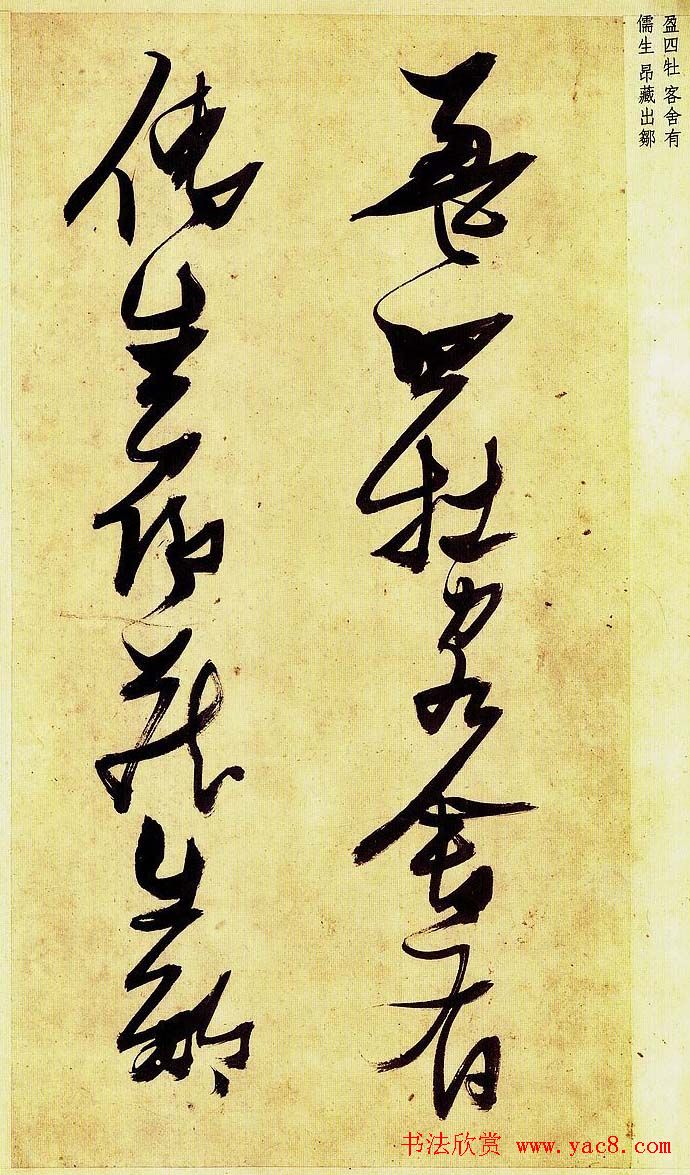 盈四牡 客舍有
儒生 昂藏出鄒
盈四牡客舍有
儒生昂藏出鄒
书法欣赏 www.yac8.com